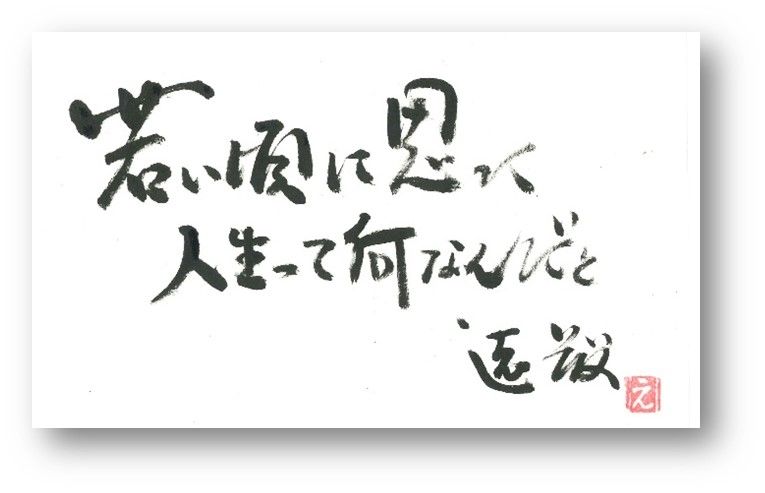 若い頃に思って
人生って何なんだと
遠敬
え